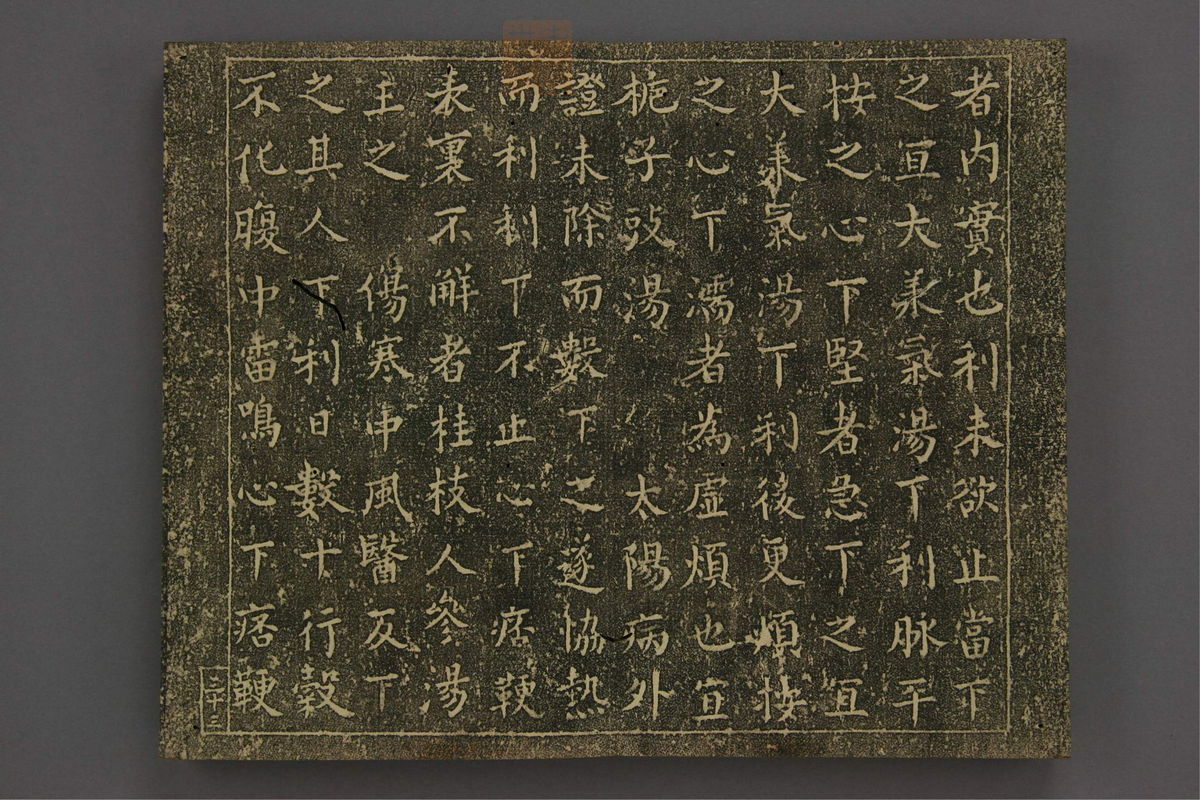 者内實也利未欲止當下
之宜大承氣湯下利脉平
按之心下堅者急下之宜
大承氣湯下利後更煩按
之心下濡者為虛煩也宜
梔子豉湯　太陽病外
證未除而數下之遂協熱
而利利下不止心下痞鞕
表裏不解者桂枝人參湯
主之　傷寒中風醫反下
之其人下利日數十行穀
不化腹中雷鳴心下痞鞕